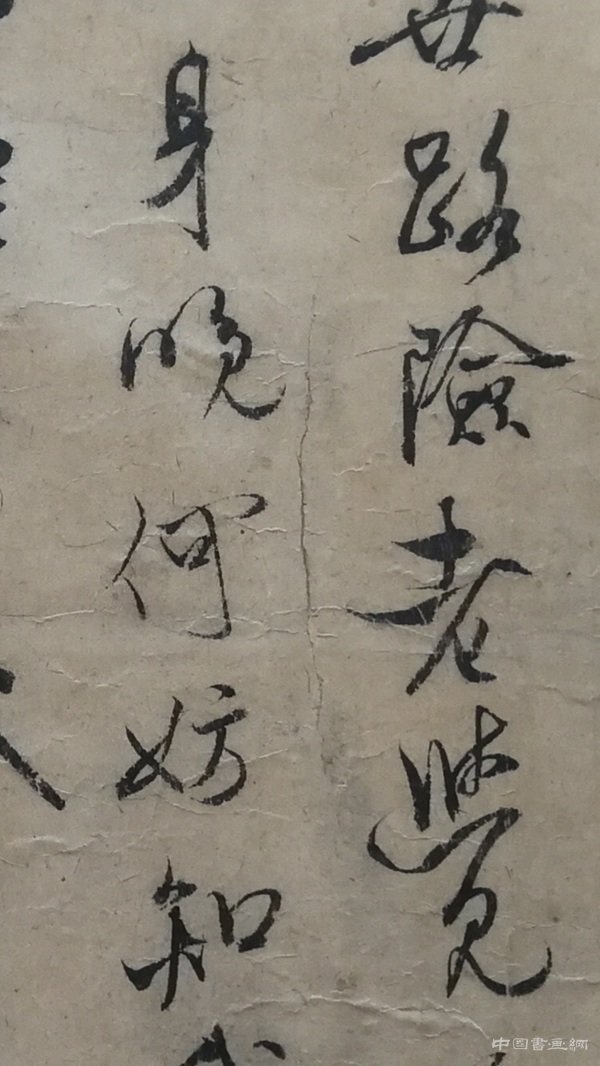 世路險老覺
身晚何妨知
中国書画網